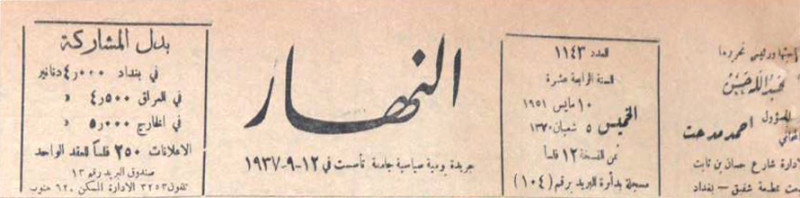 صاحبها ورئيس تحريرها
عبدالله حسن
المسؤول
احمد مدحت
شارع حسان بن ثابت
مطبعة شفيق - بغداد
العدد ١١٤٣
السنة الرابعة عشرة
الخميس
١٠ مايس ١٩٥١
٥ شعبان ١٣٧٠
ثمن النسخة ١٢ فلسا
مسجلة بدأرة البريد برقم (١٠٤)
النهار
جريدة يومية سياسية جامعة تأسست في ١٢-٩-١٩٣٧
بدل المشاركة
في بغداد ٤٫٠٠٠ دنانير
في العراق ٤٫٥٠٠ «
في الخارج ٥٫٠٠٠ «
الاعلانات ٢٥٠ فلساً للعقد الواحد
صندوق البريد رقم ١٣
تلفون ٣٢٥٣ الادارة المسكن ٦٢٠ جنوب